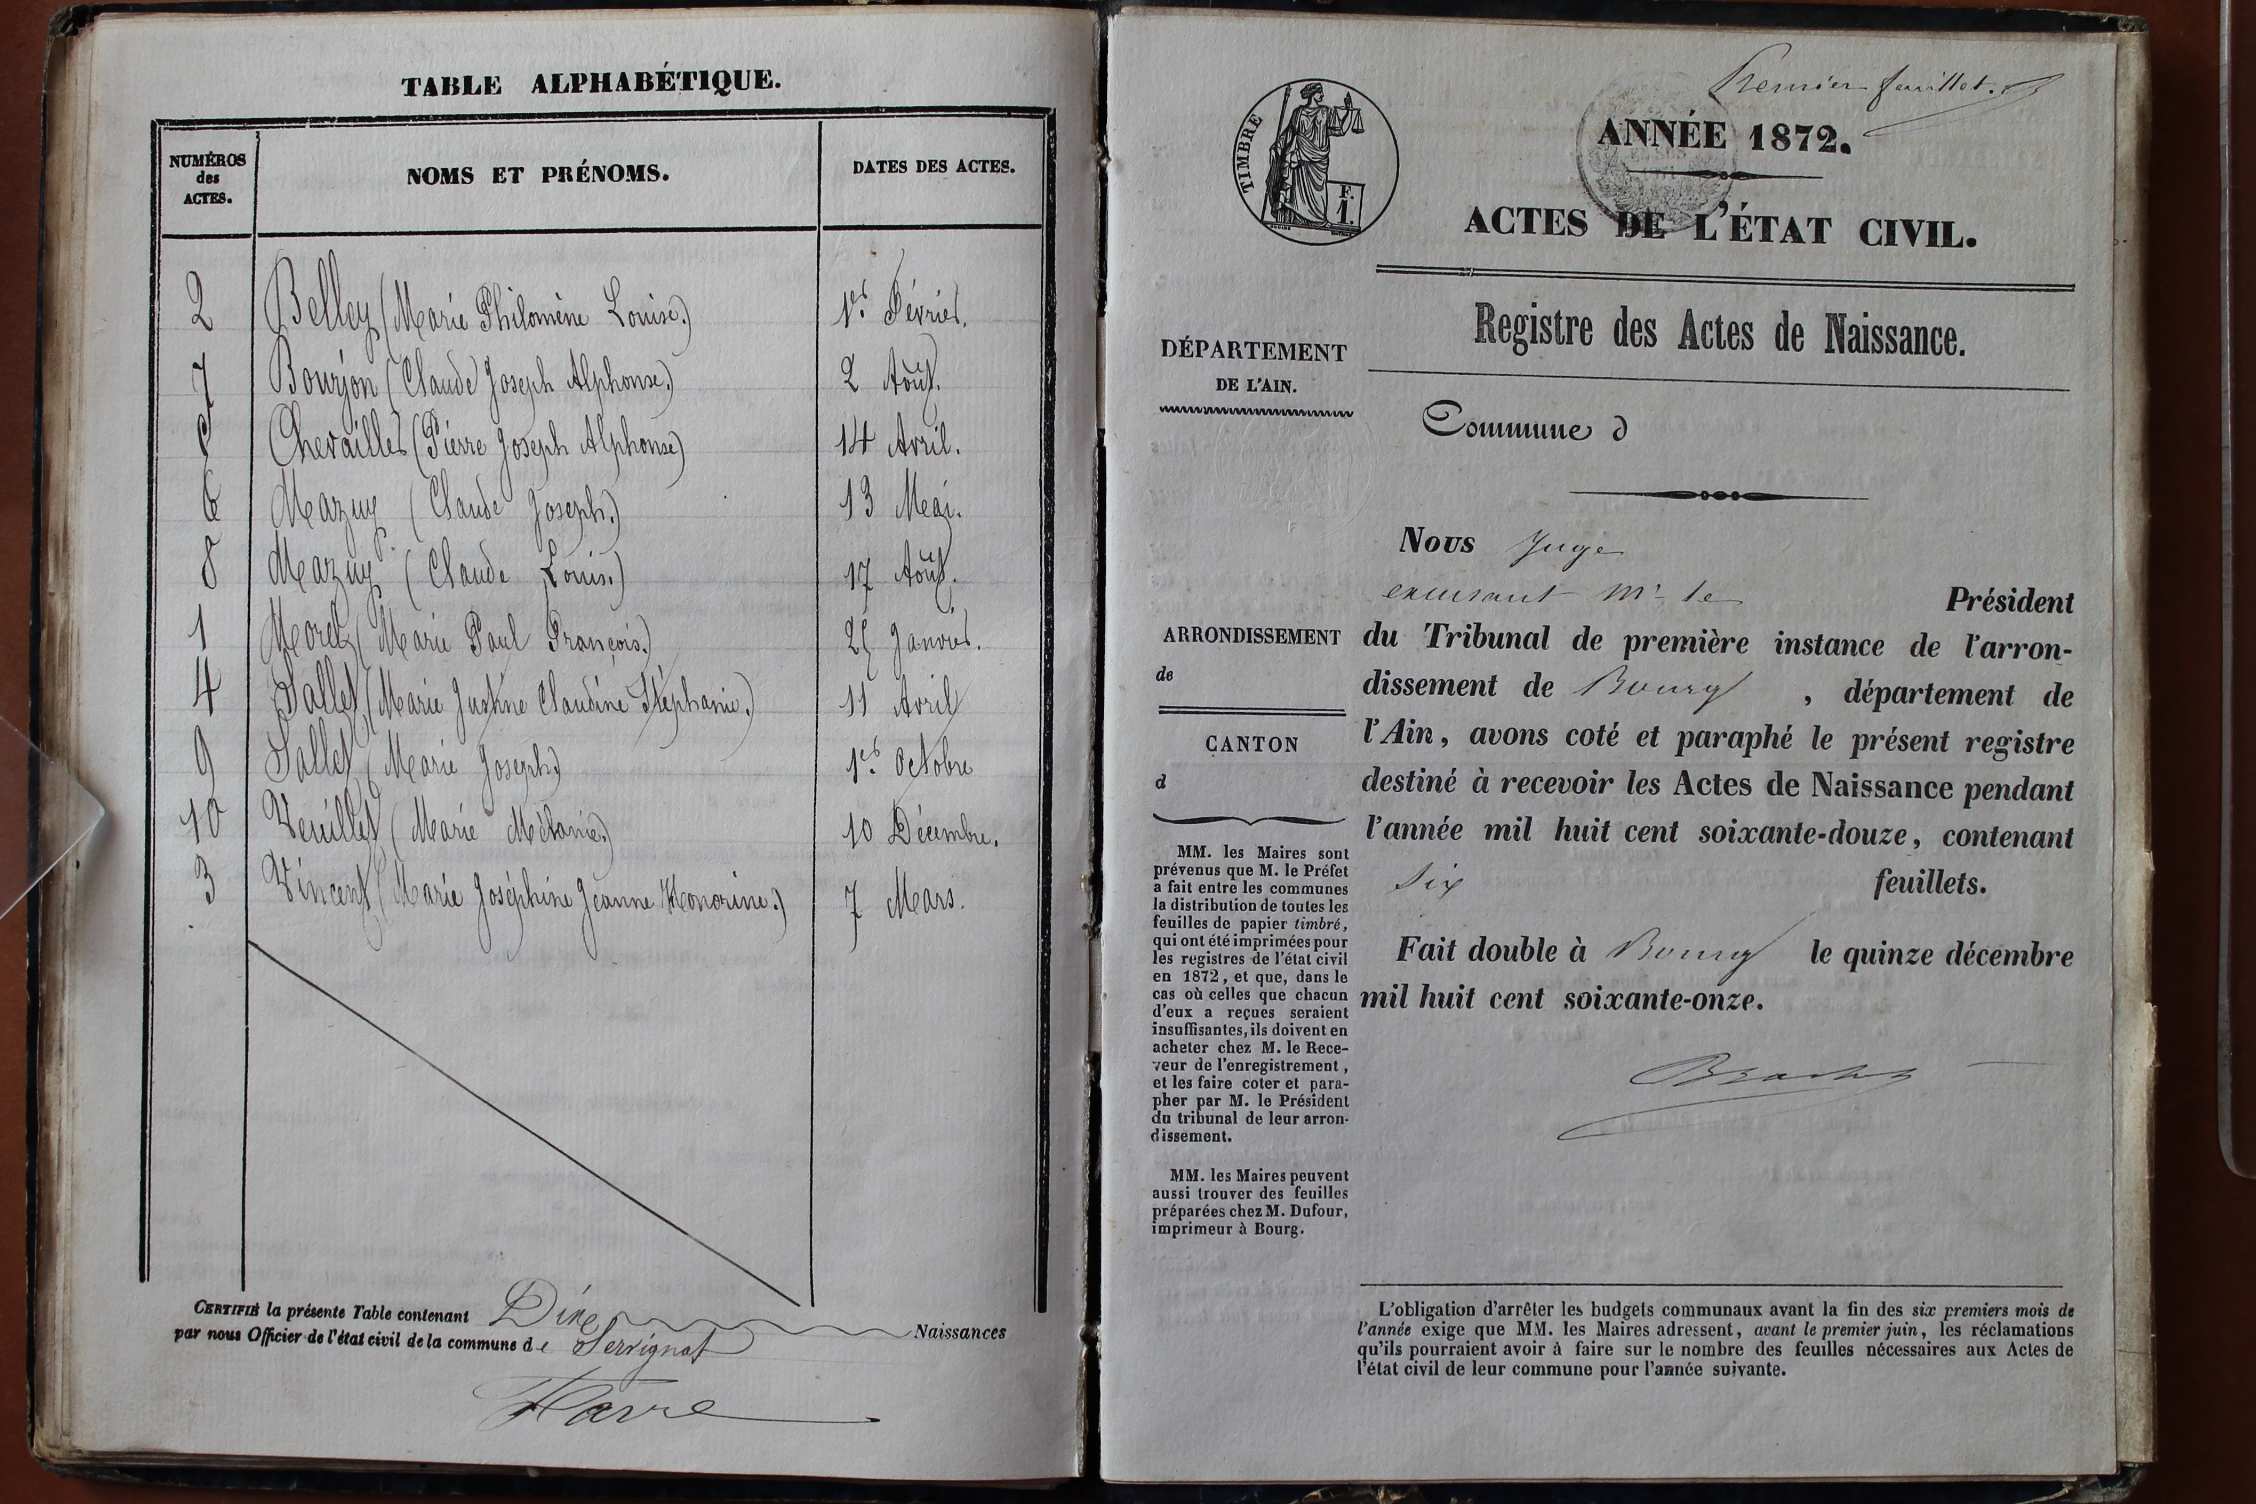 TABLE ALPHABÉTIQUE.
NUMÉROS des ACTES.
NOMS ET PRÉNOMS.
DATES DES ACTES.
2 Belley (Marie Philomène Louise.) 1er Février.
7 Bourjon (Claude Joseph Alphonse.) 2 Août.
5 Chevailler (Pierre Joseph Alphonse) 14 Avril.
6 Mazuy (Claude Joseph.) 13 Mai.
8 Mazuy (Claude Louis.) 17 Août.
1 Morel (Marie Paul François.) 25 Janvier.
4 Sallet (Marie Justine Claudine Stéphanie.) 11 Avril
9 Sallet (Marie Joseph) 1er Octobre
10 Veuillet (Marie Mélanie.) 10 Décembre.
3 Vincent (Marie Joséphine Jeanne Honorine.) 7 Mars.
CERTIFIÉ la présente Table contenant Dix Naissances
par nous Officier de l'état civil de la commune de Servignat
Favre
Premier feuillet.
TIMBRE
F.
1.
ANNÉE 1872.
ACTES DE L'ÉTAT CIVIL.
Registre des Actes de Naissance.
DÉPARTEMENT
DE L'AIN.
Commune d
ARRONDISSEMENT
de
CANTON
d
MM. les Maires sont
prévenus que M. le Préfet
a fait entre les communes
la distribution de toutes les
feuilles de papier timbré,
qui ont été imprimées pour
les registres de l'état civil
en 1872, et que, dans le
cas où celles que chacun
d'eux a reçues seraient
insuffisantes, ils doivent en
acheter chez M. le Rece-
veur de l'enregistrement,
et les faire coter et para-
pher par M. le Président
du tribunal de leur arron-
dissement.
MM. les Maires peuvent
aussi trouver des feuilles
préparées chez M. Dufour,
imprimeur à Bourg.
Nous Juge
excusant Mr le Président
du Tribunal de première instance de l'arron-
dissement de Bourg, département de
l'Ain, avons coté et paraphé le présent registre
destiné à recevoir les Actes de Naissance pendant
l'année mil huit cent soixante-douze, contenant
six feuillets.
Fait double à Bourg le quinze décembre
mil huit cent soixante-onze.
L'obligation d'arrêter les budgets communaux avant la fin des six premiers mois de
l'année exige que MM. les Maires adressent, avant le premier juin, les réclamations
qu'ils pourraient avoir à faire sur le nombre des feuilles nécessaires aux Actes de
l'état civil de leur commune pour l'année suivante.